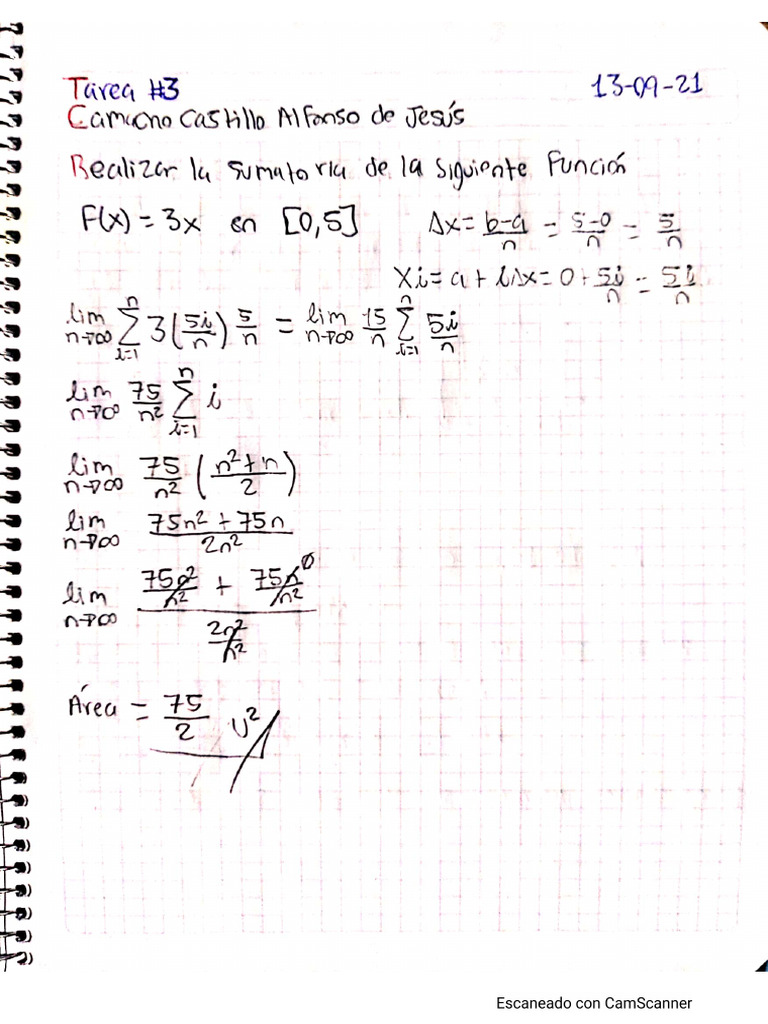 Tarea #3 13-09-21
Camacho Castillo Alfonso de Jesús
Realizar la sumatoria de la siguiente Función
F(x) = 3x en [0,5] Δx = b-a/n = 5-0/n = 5/n
Xi = a + iΔx = 0 + 5i/n = 5i/n
lim n→∞ n Σ i=1 3(5i/n) 5/n = lim n→∞ 15/n n Σ i=1 5i/n
lim n→∞ 75/n² n Σ i=1 i
lim n→∞ 75/n² (n²+n/2)
lim n→∞ 75n² + 75n/2n²
lim n→∞ 75n²/n² + 75n/n² 0 / 2n²/n²
Área = 75/2 u²
Escaneado con CamScanner